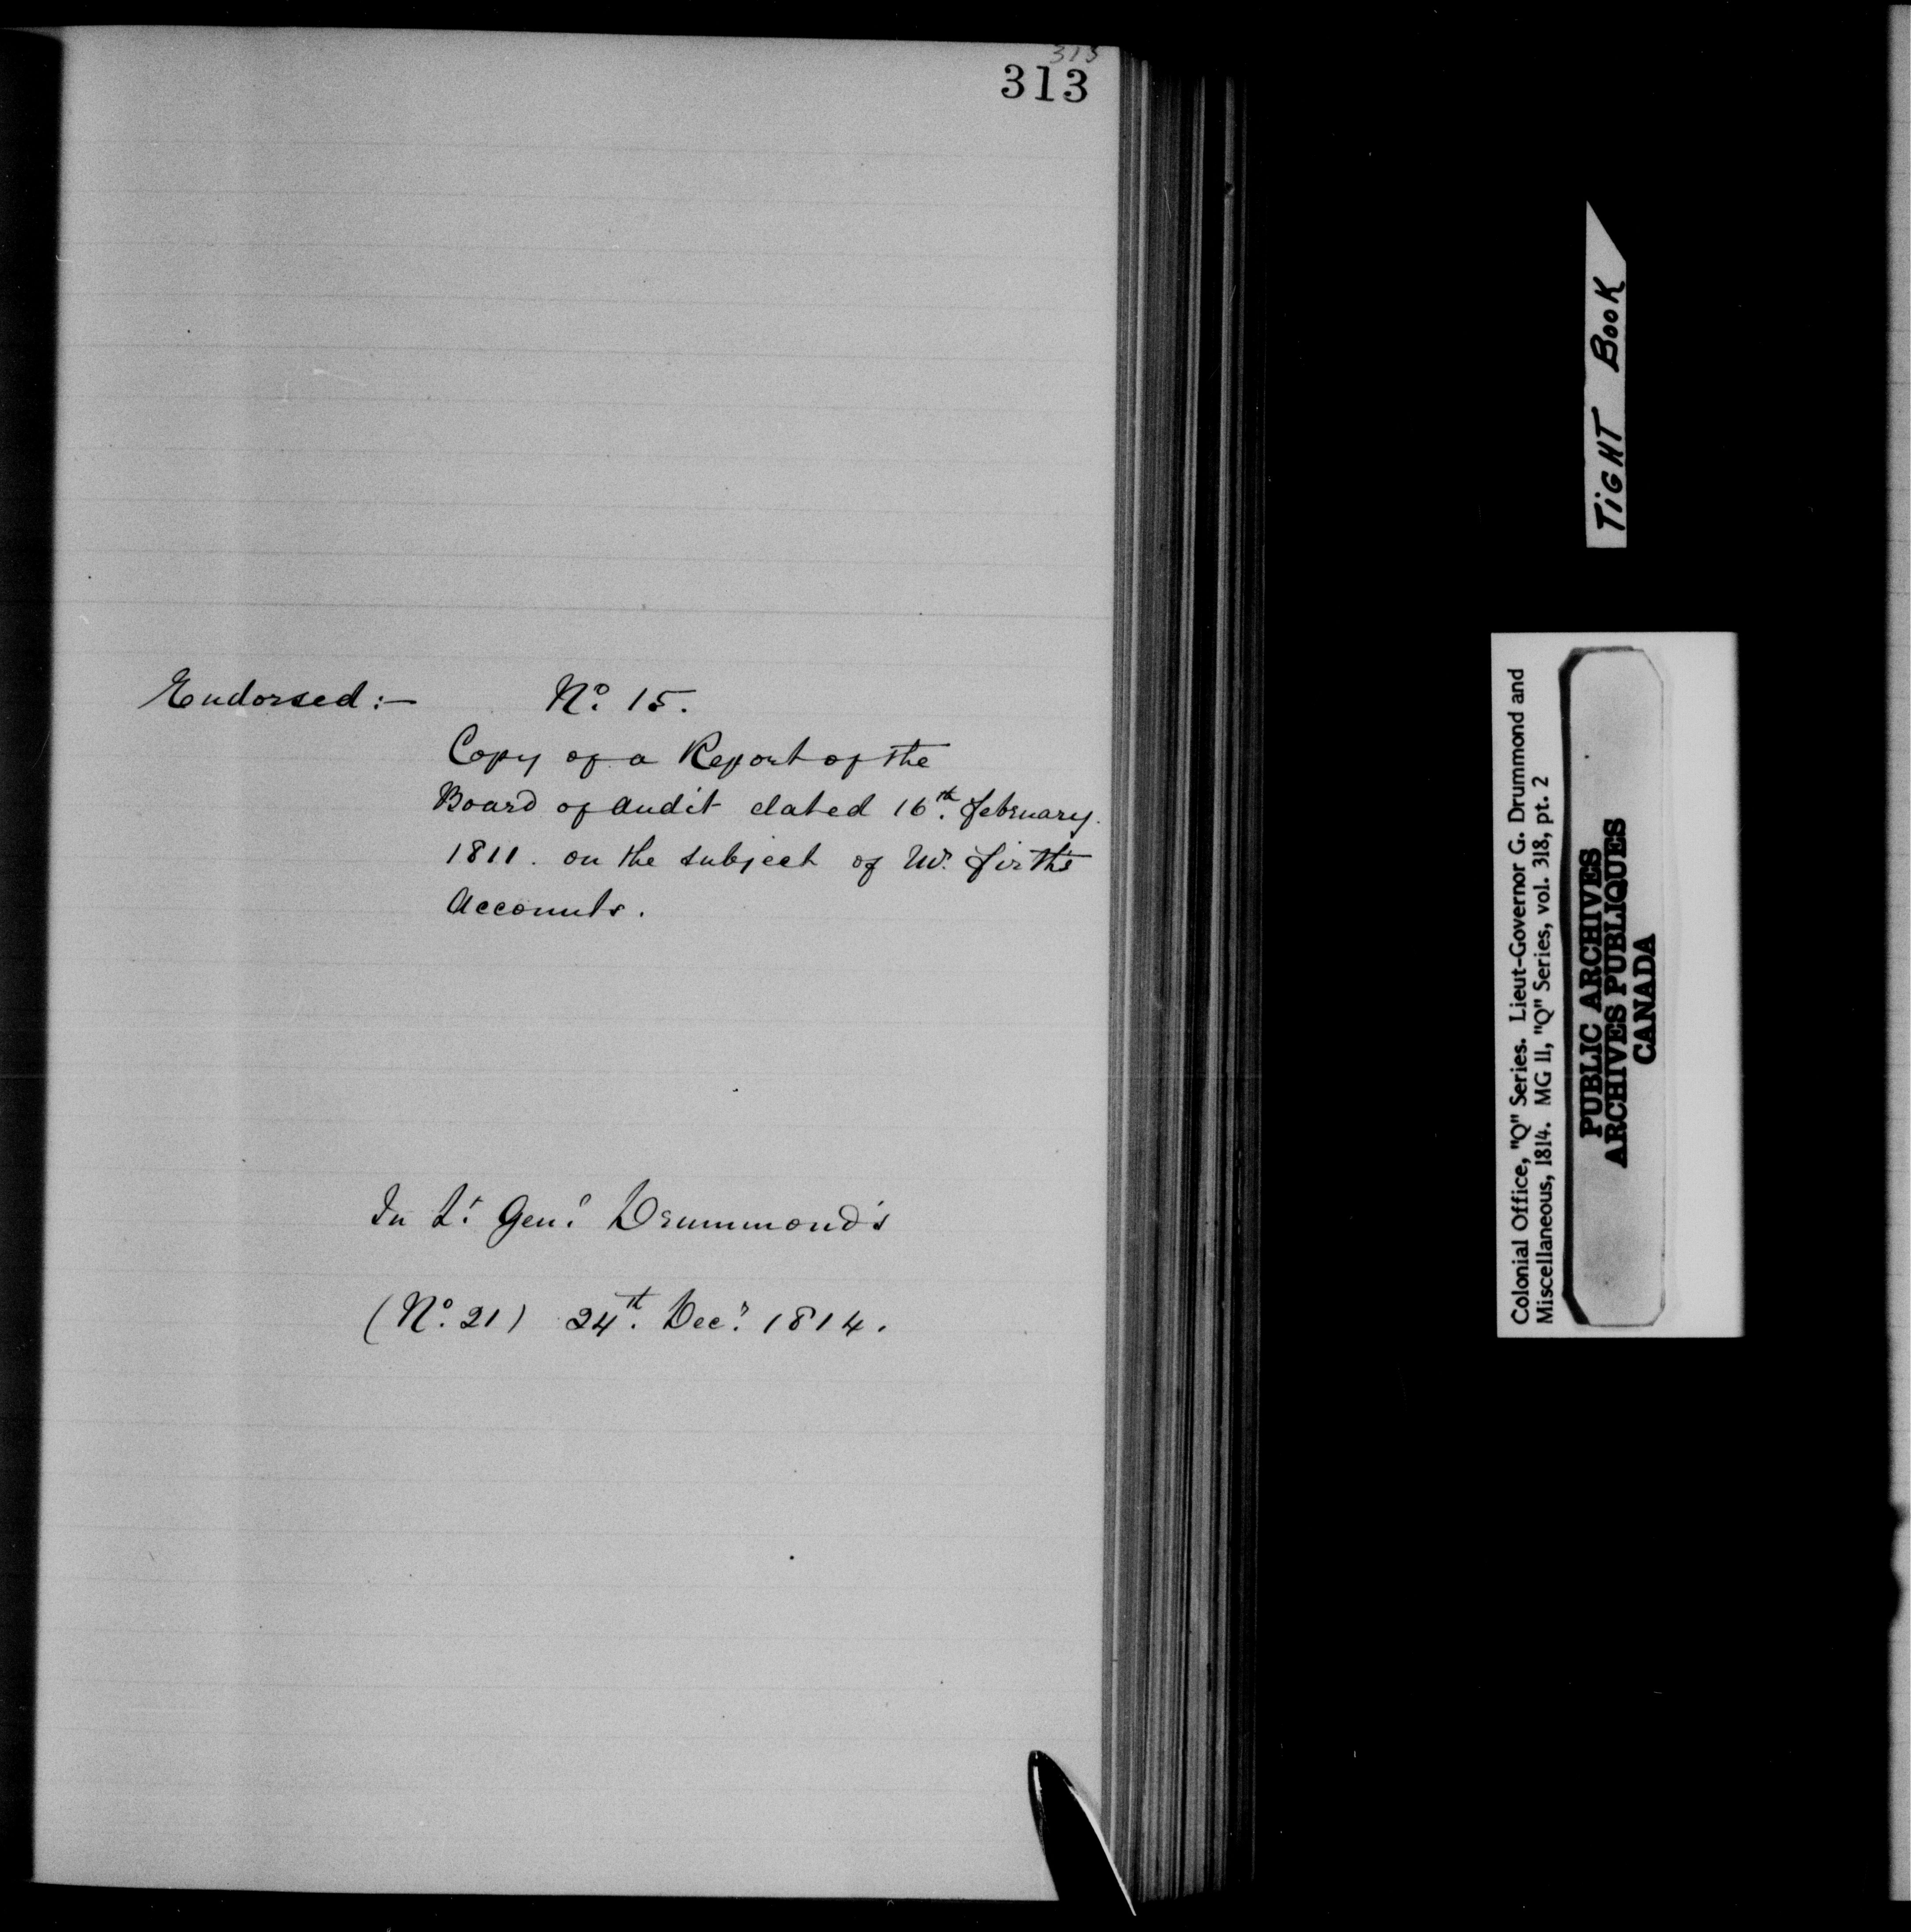 313
313
Endorsed:- No. 15.
Copy of a Report of the
Board of Audit dated 16th. February.
1811. on the subject of Mr. Firth's
Accounts.
In Lt. Genl. Drummond's
(No. 21) 24th. Decr. 1814.
TiGHT BooK
Colonial Office, "Q" Series. Lieut-Governor G. Drummond and
Miscellaneous, 1814. MG 11, "Q" Series, vol. 318, pt. 2
PUBLIC ARCHIVES
ARCHIVES PUBLIQUES
CANADA